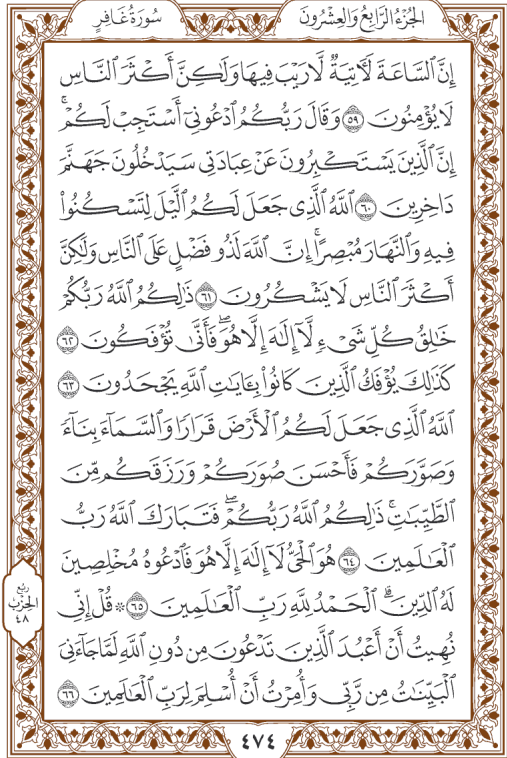 الجُزْءُ الرَّابِعُ وَالعِشْرُونَ
سُورَةُ غَافِرٍ
إِنَّ ٱلسَّاعَةَ لَأٓتِيَةٌ لَّا رَيۡبَ فِيهَا وَلَٰكِنَّ أَكۡثَرَ ٱلنَّاسِ
لَا يُؤۡمِنُونَ ٥٩ وَقَالَ رَبُّكُمُ ٱدۡعُونِيٓ أَسۡتَجِبۡ لَكُمۡۚ
إِنَّ ٱلَّذِينَ يَسۡتَكۡبِرُونَ عَنۡ عِبَادَتِي سَيَدۡخُلُونَ جَهَنَّمَ
دَاخِرِينَ ٦٠ ٱللَّهُ ٱلَّذِي جَعَلَ لَكُمُ ٱلَّيۡلَ لِتَسۡكُنُواْ
فِيهِ وَٱلنَّهَارَ مُبۡصِرًاۚ إِنَّ ٱللَّهَ لَذُو فَضۡلٍ عَلَى ٱلنَّاسِ وَلَٰكِنَّ
أَكۡثَرَ ٱلنَّاسِ لَا يَشۡكُرُونَ ٦١ ذَٰلِكُمُ ٱللَّهُ رَبُّكُمۡ
خَٰلِقُ كُلِّ شَيۡءٖ لَّآ إِلَٰهَ إِلَّا هُوَۖ فَأَنَّىٰ تُؤۡفَكُونَ ٦٢
كَذَٰلِكَ يُؤۡفَكُ ٱلَّذِينَ كَانُواْ بِـَٔايَٰتِ ٱللَّهِ يَجۡحَدُونَ ٦٣
ٱللَّهُ ٱلَّذِي جَعَلَ لَكُمُ ٱلۡأَرۡضَ قَرَارٗا وَٱلسَّمَآءَ بِنَآءٗ
وَصَوَّرَكُمۡ فَأَحۡسَنَ صُوَرَكُمۡ وَرَزَقَكُم مِّنَ
ٱلطَّيِّبَٰتِۚ ذَٰلِكُمُ ٱللَّهُ رَبُّكُمۡۖ فَتَبَارَكَ ٱللَّهُ رَبُّ
ٱلۡعَٰلَمِينَ ٦٤ هُوَ ٱلۡحَيُّ لَآ إِلَٰهَ إِلَّا هُوَ فَٱدۡعُوهُ مُخۡلِصِينَ
لَهُ ٱلدِّينَۗ ٱلۡحَمۡدُ لِلَّهِ رَبِّ ٱلۡعَٰلَمِينَ ٦٥ ۞ قُلۡ إِنِّي
نُهِيتُ أَنۡ أَعۡبُدَ ٱلَّذِينَ تَدۡعُونَ مِن دُونِ ٱللَّهِ لَمَّا جَآءَنِيَ
ٱلۡبَيِّنَٰتُ مِن رَّبِّي وَأُمِرۡتُ أَنۡ أُسۡلِمَ لِرَبِّ ٱلۡعَٰلَمِينَ ٦٦
ربع
الحزب
٤٨
٤٧٤